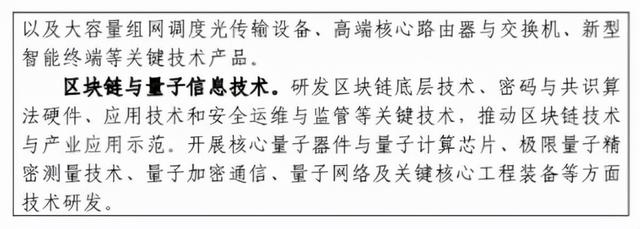 以及大容量组网调度光传输设备、高端核心路由器与交换机、新型
智能终端等关键技术产品。
区块链与量子信息技术。研发区块链底层技术、密码与共识算
法硬件、应用技术和安全运维与监管等关键技术，推动区块链技术
与产业应用示范。开展核心量子器件与量子计算芯片、极限量子精
密测量技术、量子加密通信、量子网络及关键核心工程装备等方面
技术研发。